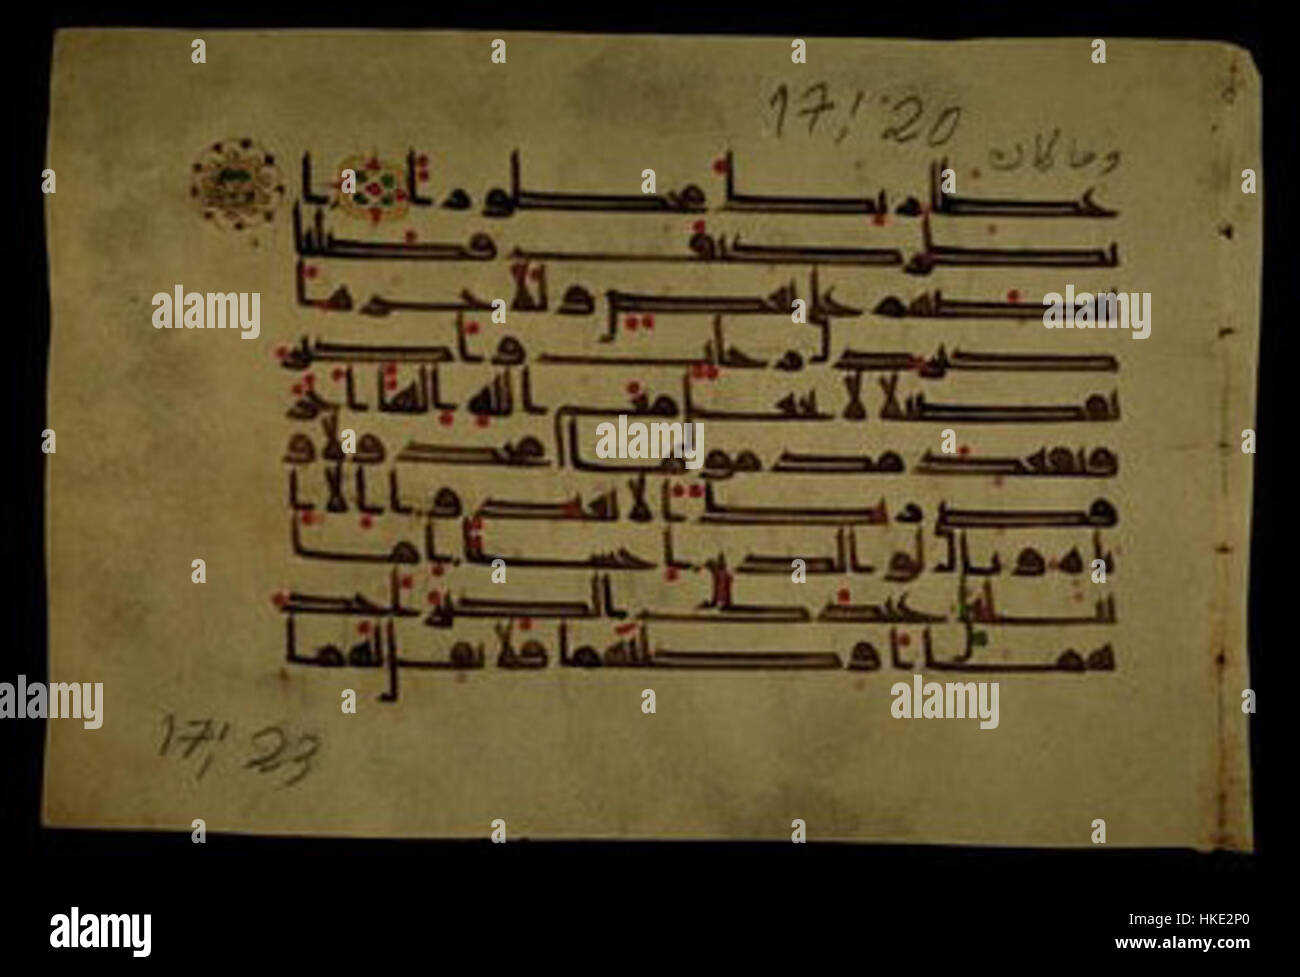 17: 20
وما كان
عطا ربك محظورا ا
نظر كيف فضلنا
بعضهم على بعض وللاخرة ا
كبر درجت واكبر
تفضيلا لا تجعل مع الله الها اخر
فتقعد مذموما مخذولا و
قضى ربك الا تعبدوا الا ا
ياه وبالولدين احسنا اما
يبلغن عندك الكبر احد
هما او كلاهما فلا تقل لهما
17: 23
alamy
alamy
alamy
alamy
alamy
alamy
alamy
Image ID: HKE2P0
www.alamy.com